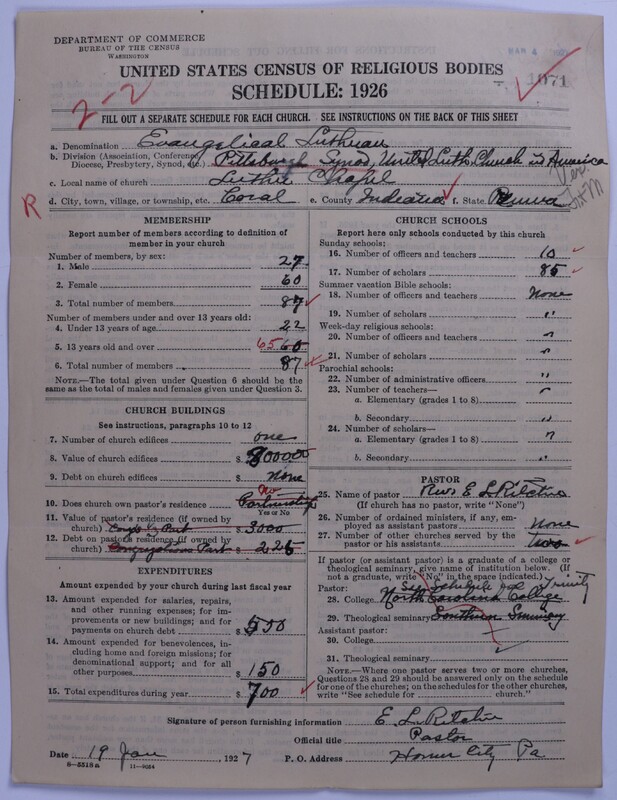 DEPARTMENT OF COMMERCE
BUREAU OF THE CENSUS
WASHINGTON
UNITED STATES CENSUS OF RELIGIOUS BODIES
1071
SCHEDULE: 1926
2-2
FILL OUT A SEPARATE SCHEDULE FOR EACH CHURCH. SEE INSTRUCTIONS ON THE BACK OF THIS SHEET
a. Denomination Evangelical Lutheran
b. Division (Association, Conference, Diocese, Presbytery, Synod, etc.) Pittsburgh Synod, United Luth. Church in America
c. Local name of church Luther Chapel
R
d. City, town, village, or township, etc. Coral e. County Indiana f. State Penna
MEMBERSHIP
Report number of members according to definition of member in your church
Number of members, by sex:
1. Male 27
2. Female 60
3. Total number of members 87
Number of members under and over 13 years old:
4. Under 13 years of age 22
5. 13 years old and over 65 60
6. Total number of members 87
NOTE.—The total given under Question 6 should be the same as the total of males and females given under Question 3.
CHURCH BUILDINGS
See instructions, paragraphs 10 to 12
7. Number of church edifices one
8. Value of church edifices $
9. Debt on church edifices $ None
10. Does church own pastor's residence No Partnership
Yes or No
11. Value of pastor's residence (if owned by church) Cong's Part $ 3000
12. Debt on pastor's residence (if owned by church) Congregations Part $ 225
EXPENDITURES
Amount expended by your church during last fiscal year
13. Amount expended for salaries, repairs, and other running expenses; for improvements or new buildings; and for payments on church debt $ 550
14. Amount expended for benevolences, including home and foreign missions; for denominational support; and for all other purposes $ 150
15. Total expenditures during year $ 700
CHURCH SCHOOLS
Report here only schools conducted by this church
Sunday schools:
16. Number of officers and teachers 10
17. Number of scholars 85
Summer vacation Bible schools:
18. Number of officers and teachers None
19. Number of scholars "
Week-day religious schools:
20. Number of officers and teachers "
21. Number of scholars "
Parochial schools:
22. Number of administrative officers "
23. Number of teachers—
a. Elementary (grades 1 to 8) "
b. Secondary "
24. Number of scholars—
a. Elementary (grades 1 to 8) "
b. Secondary "
PASTOR
25. Name of pastor Rev E L Ritchie
(If church has no pastor, write "None")
26. Number of ordained ministers, if any, employed as assistant pastors None
27. Number of other churches served by the pastor or his assistants two
If pastor (or assistant pastor) is a graduate of a college or theological seminary, give name of institution below. (If not a graduate, write "No" in the space indicated.)
Pastor: See Schedule for Trinity
28. College North Carolina College
29. Theological seminary Southern Seminary
Assistant pastor:
30. College
31. Theological seminary
NOTE.—Where one pastor serves two or more churches, Questions 28 and 29 should be answered only on the schedule for one of the churches; on the schedules for the other churches, write "See schedule for ________ church."
Signature of person furnishing information E. L. Ritchie
Official title Pastor
Date 19 Jan 1927 P. O. Address Homer City Pa
8—5518a 11—9064